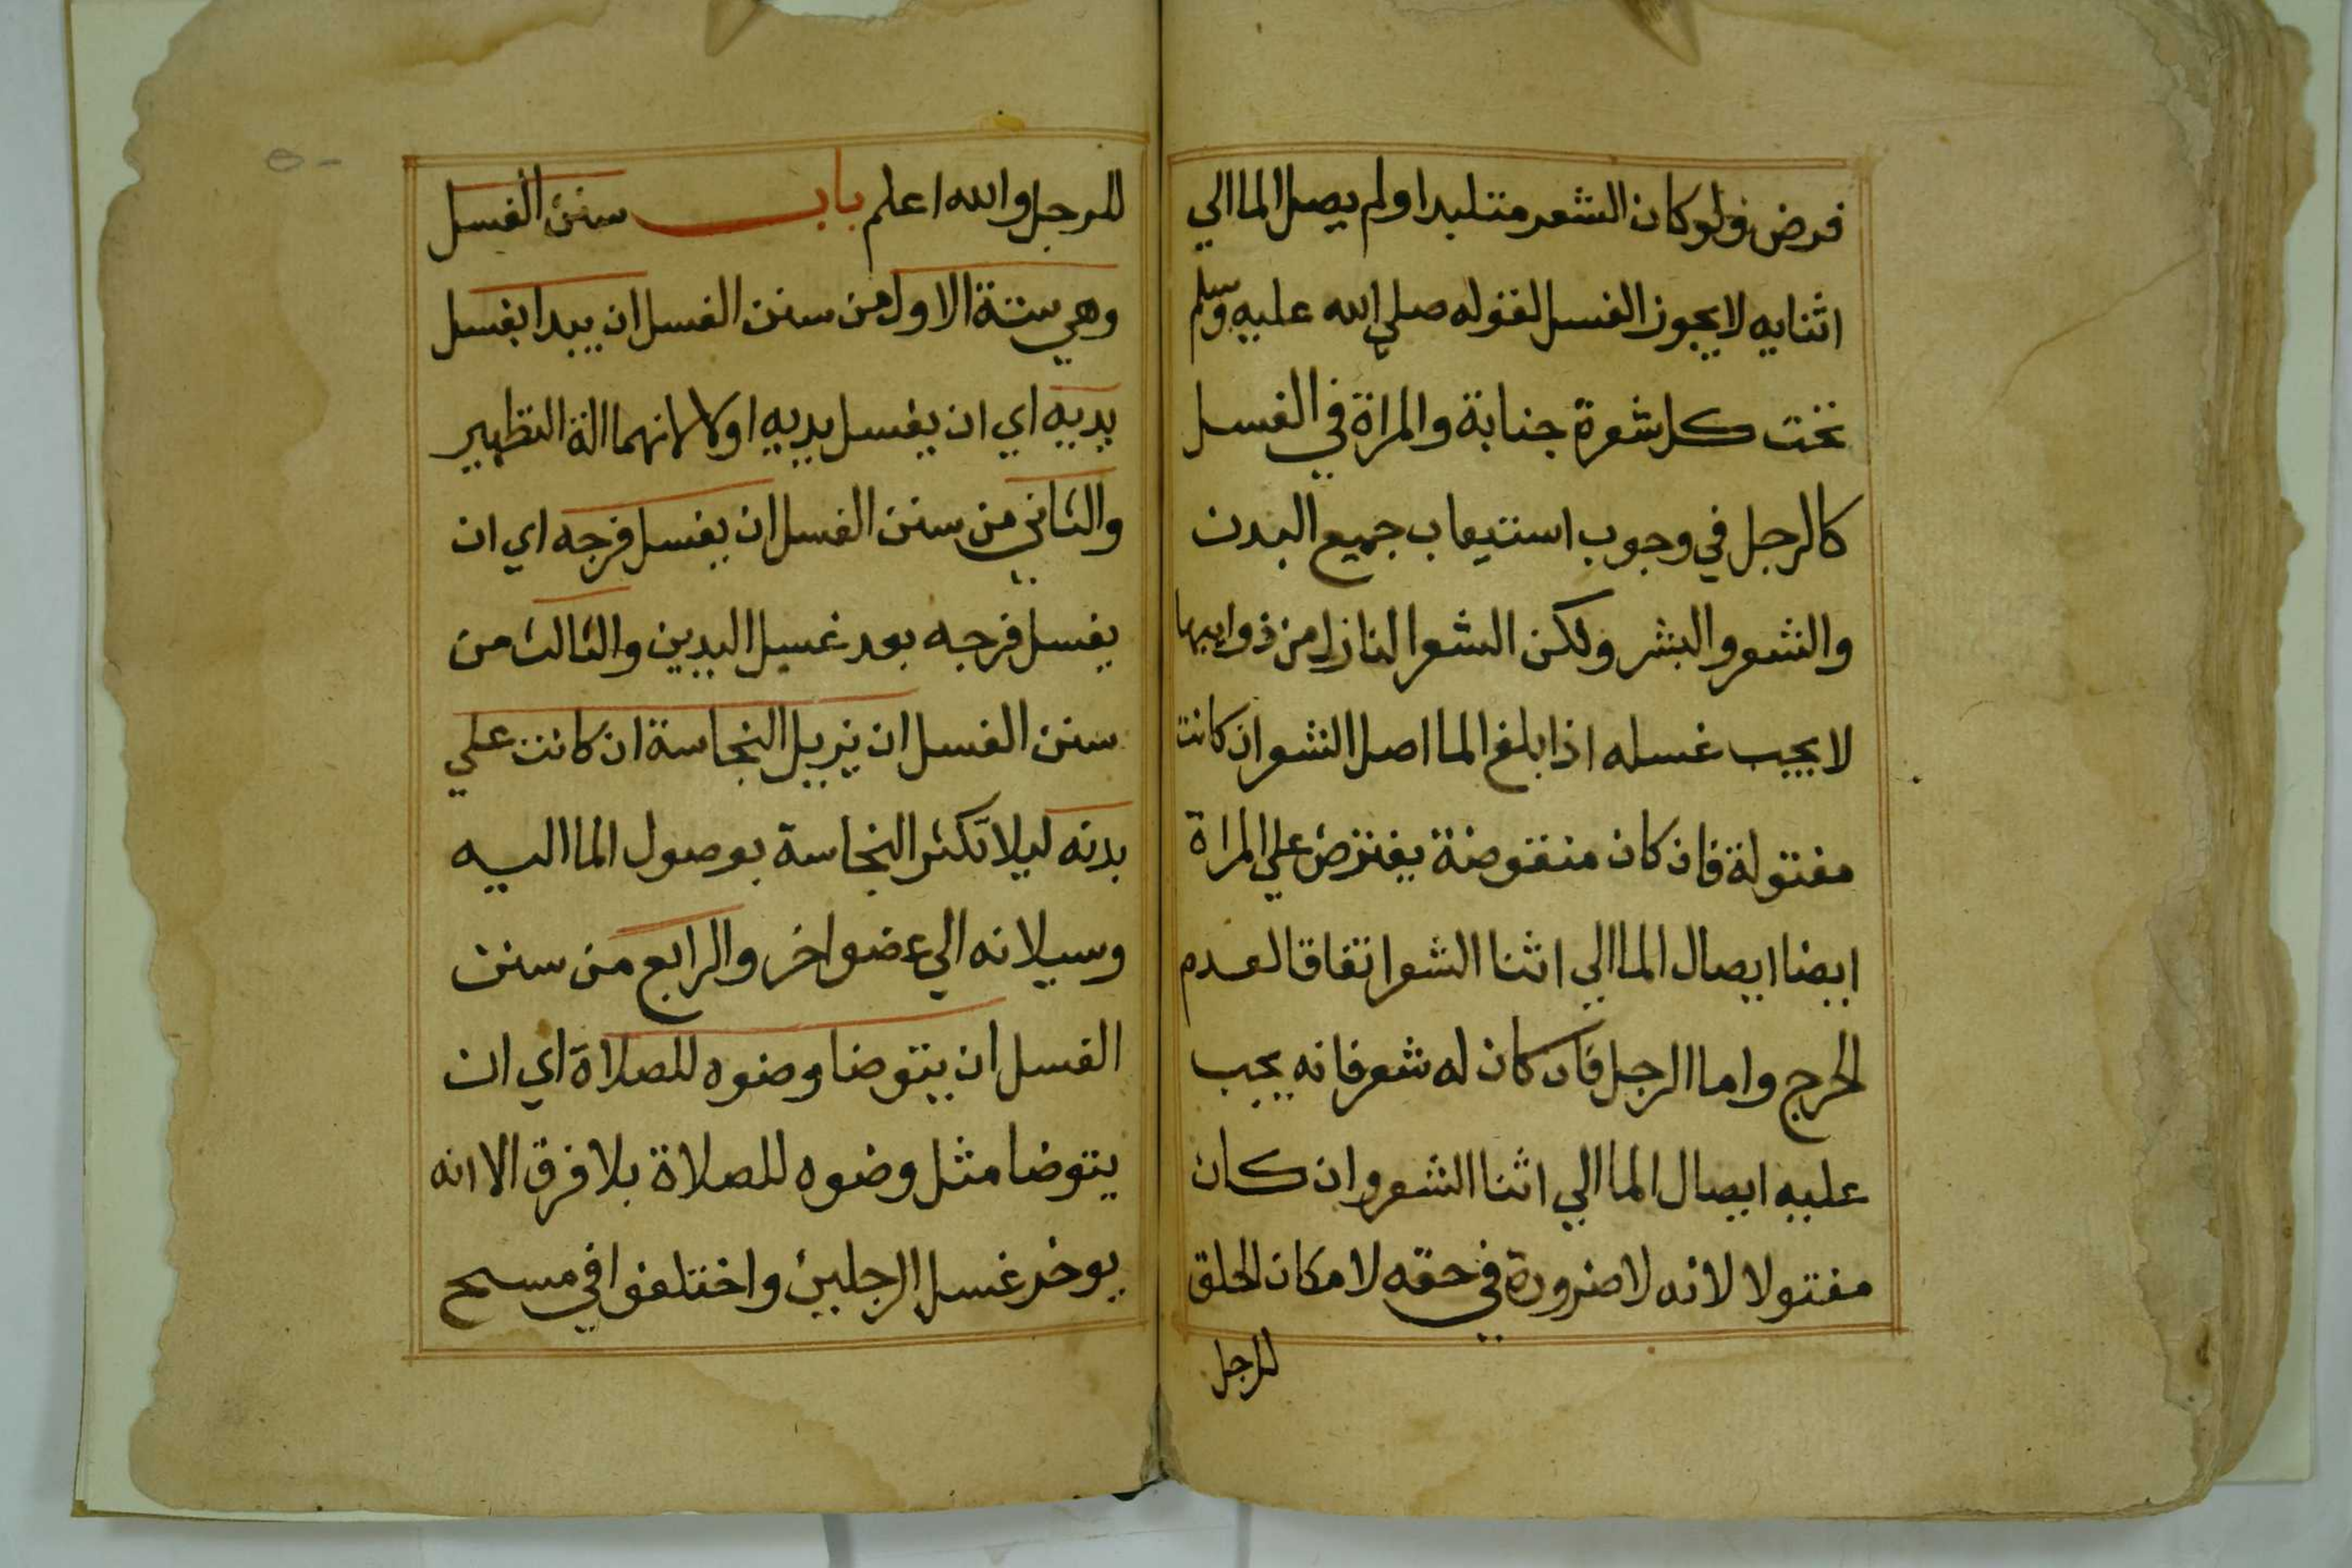 فرض ولو كان الشعر متلبدا ولم يصل الما الي
اثنايه لا يجوز الغسل لقوله صلي الله عليه وسلم
تحت كل شعرة جنابة والمراة في الغسل
كالرجل في وجوب استيعاب جميع البدن
والشعر والبشر ولكن الشعر النازل من ذوايبها
لا يجب غسله اذا بلغ الما اصل الشعر ان كانت
مفتولة فان كان منقوضة يفترض علي المراة
ايضا ايصال الما الي اثنا الشعر اتفاقا لعدم
الحرج واما الرجل فان كان له شعر فانه يجب
عليه ايصال الما الي اثنا الشعر وان كان
مفتولا لانه لا ضرورة في حقه لامكان الحلق
للرجل
للرجل والله اعلم باب سنن الغسل
وهي ستة الاول من سنن الغسل ان يبدا بغسل
يديه اي ان يغسل يديه اولا لانهما الة التطهير
والثاني من سنن الغسل ان يغسل فرجه اي ان
يغسل فرجه بعد غسل اليدين والثالث من
سنن الغسل ان يزيل النجاسة ان كانت علي
بدنه ليلا تكثر النجاسة بوصول الما اليه
وسيلانه الي عضو اخر والرابع من سنن
الغسل ان يتوضا وضوه للصلاة اي ان
يتوضا مثل وضوه للصلاة بلا فرق الا انه
يوخر غسل الرجلين واختلفوا في مسح